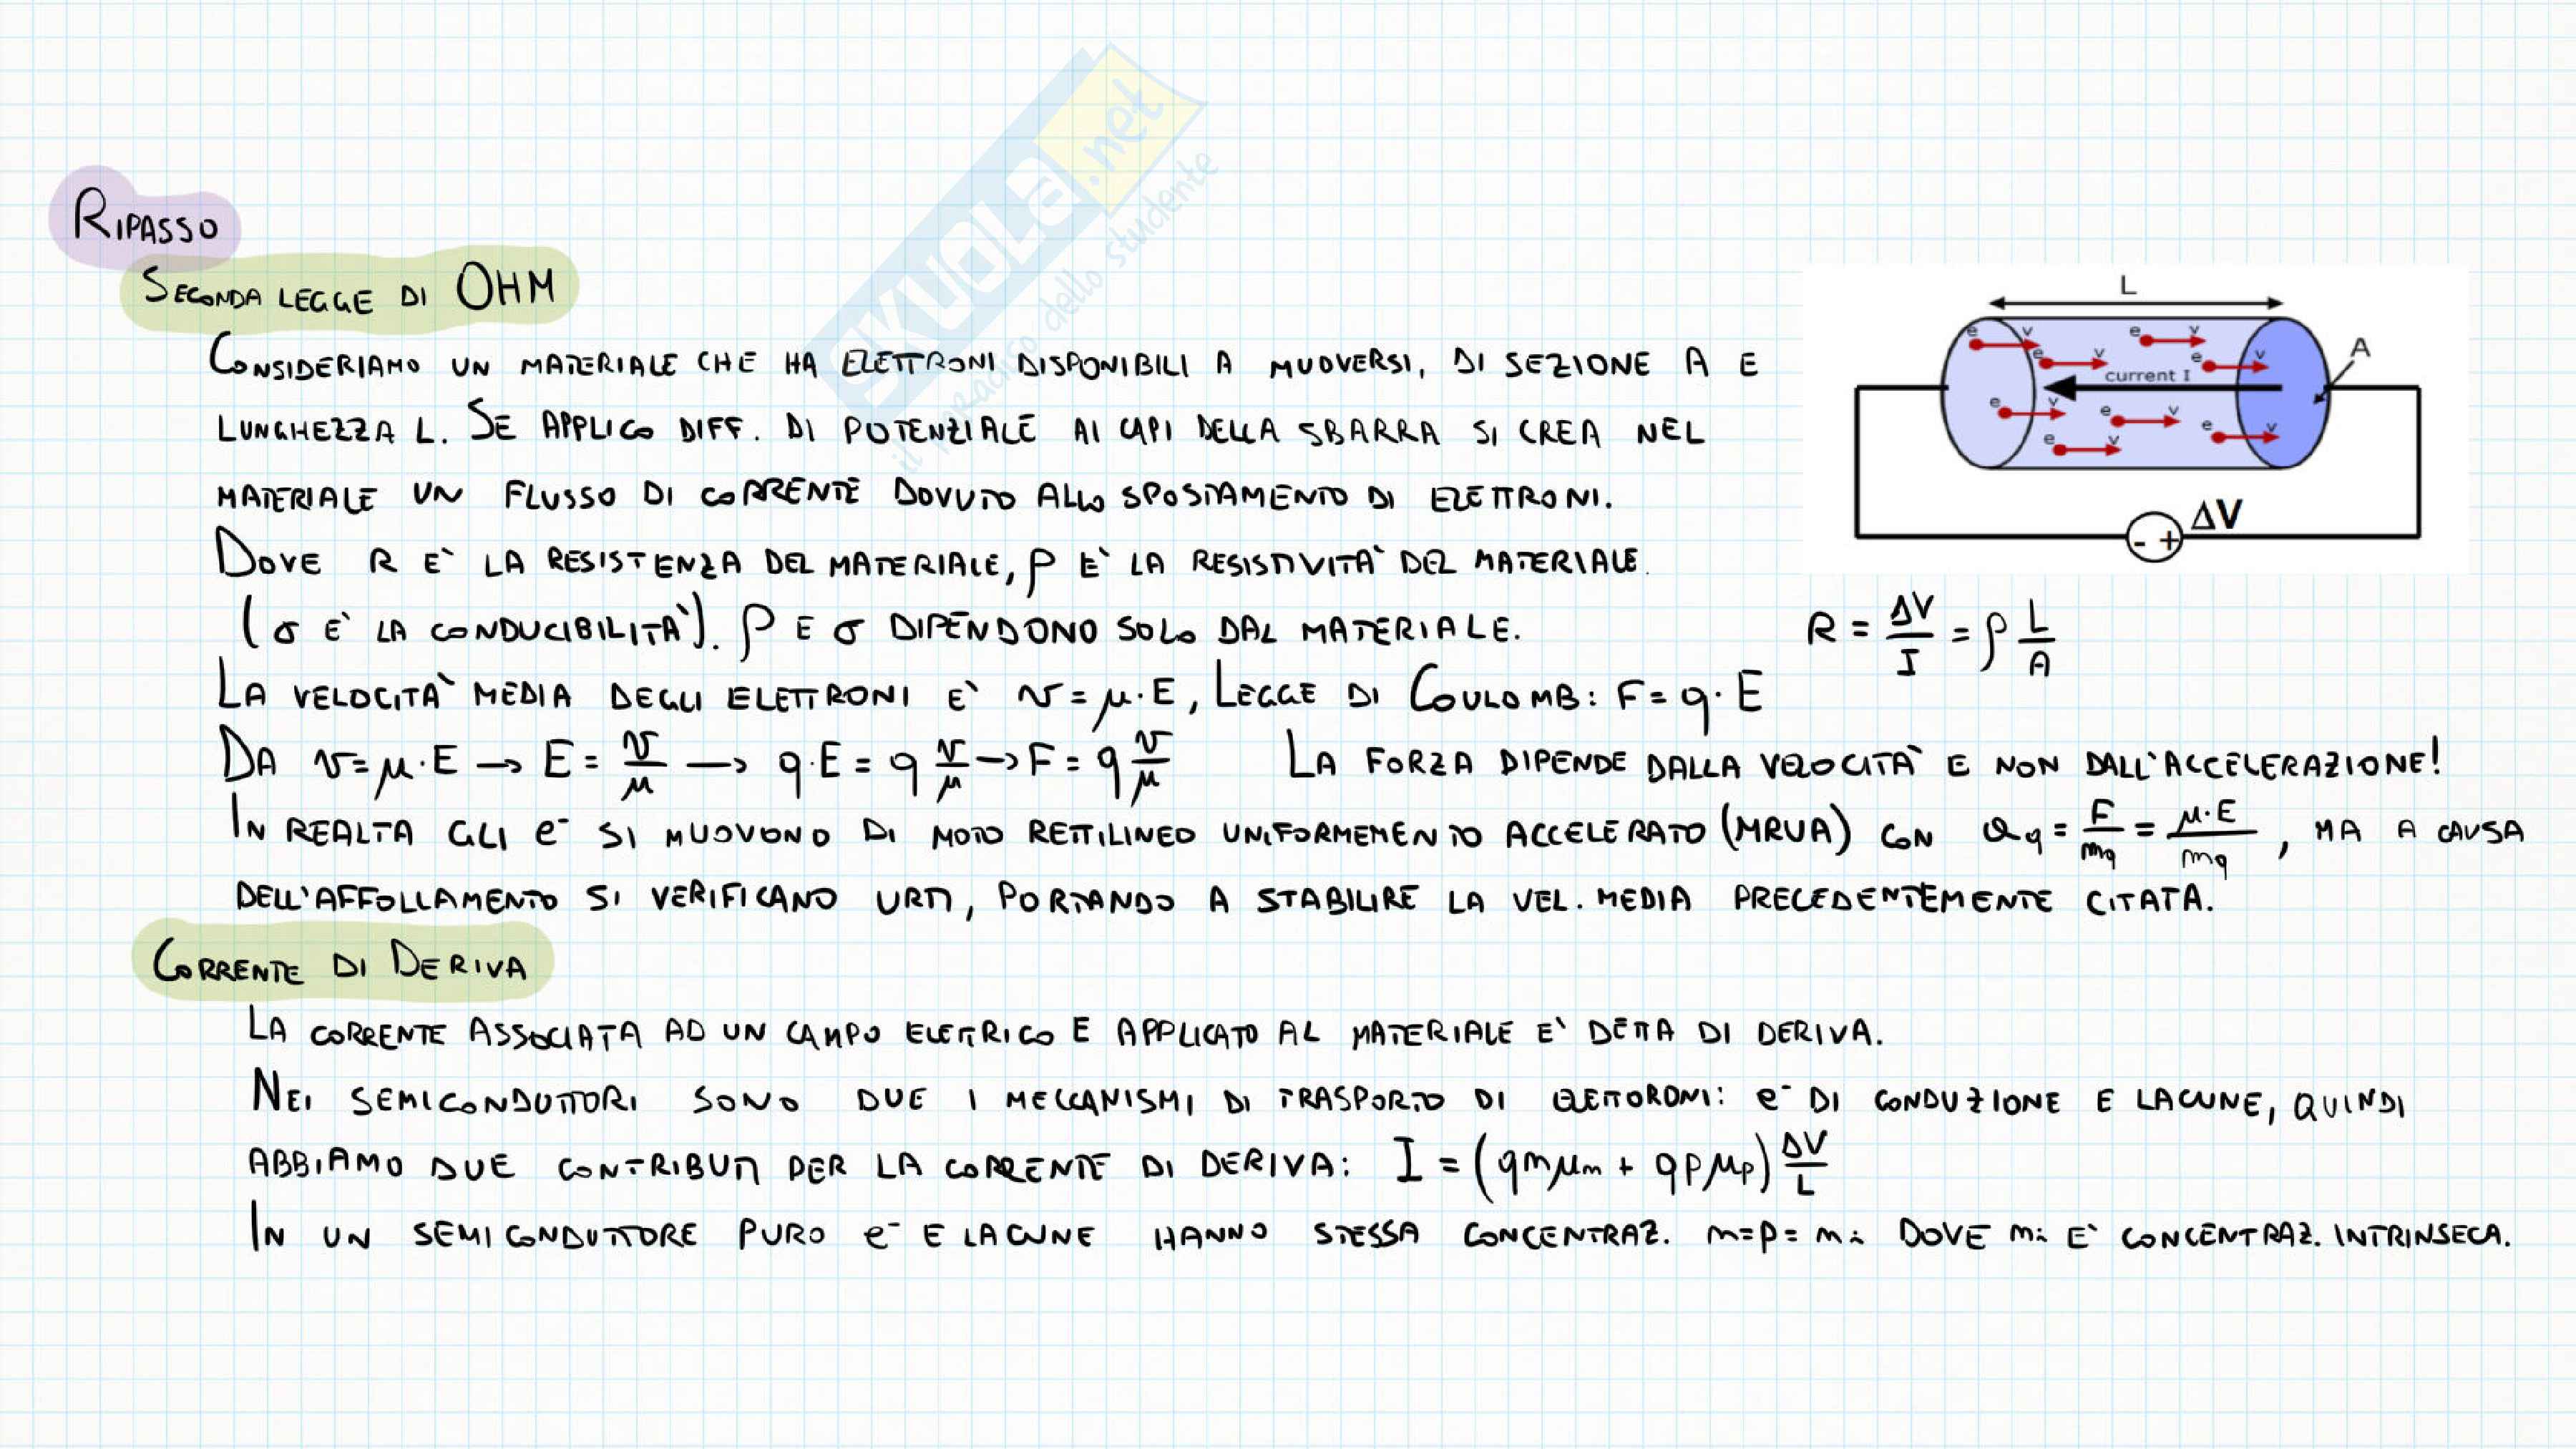 SKUOLA.net
il paradiso dello studente
RIPASSO
SECONDA LEGGE DI OHM
CONSIDERIAMO UN MATERIALE CHE HA ELETTRONI DISPONIBILI A MUOVERSI, DI SEZIONE A E
LUNGHEZZA L. SE APPLICO DIFF. DI POTENZIALE AI CAPI DELLA SBARRA SI CREA NEL
MATERIALE UN FLUSSO DI CORRENTE DOVUTO ALLO SPOSTAMENTO DI ELETTRONI.
DOVE R E` LA RESISTENZA DEL MATERIALE, ρ E` LA RESISTIVITA` DEL MATERIALE.
(σ E` LA CONDUCIBILITA`). ρ E σ DIPENDONO SOLO DAL MATERIALE.
L
e v e v e v e v
current I
A
e v e v e v e v
- + ΔV
R = ΔV/I = ρ L/A
LA VELOCITA` MEDIA DEGLI ELETTRONI E` v = μ·E, LEGGE DI COULOMB: F = q·E
DA v = μ·E → E = v/μ → q·E = q v/μ → F = q v/μ LA FORZA DIPENDE DALLA VELOCITA` E NON DALL'ACCELERAZIONE!
IN REALTA GLI e⁻ SI MUOVONO DI MOTO RETTILINEO UNIFORMEMENTO ACCELERATO (MRUA) CON aq = F/mq = μ·E/mq, MA A CAUSA
DELL'AFFOLLAMENTO SI VERIFICANO URTI, PORTANDO A STABILIRE LA VEL. MEDIA PRECEDENTEMENTE CITATA.
CORRENTE DI DERIVA
LA CORRENTE ASSOCIATA AD UN CAMPO ELETTRICO E APPLICATO AL MATERIALE E` DETTA DI DERIVA.
NEI SEMICONDUTTORI SONO DUE I MECCANISMI DI TRASPORTO DI ELETTORONI: e⁻ DI CONDUZIONE E LACUNE, QUINDI
ABBIAMO DUE CONTRIBUTI PER LA CORRENTE DI DERIVA: I = (qnμn + qpμp) ΔV/L
IN UN SEMICONDUTTORE PURO e⁻ E LACUNE HANNO STESSA CONCENTRAZ. n=p=ni DOVE ni E` CONCENTRAZ. INTRINSECA.